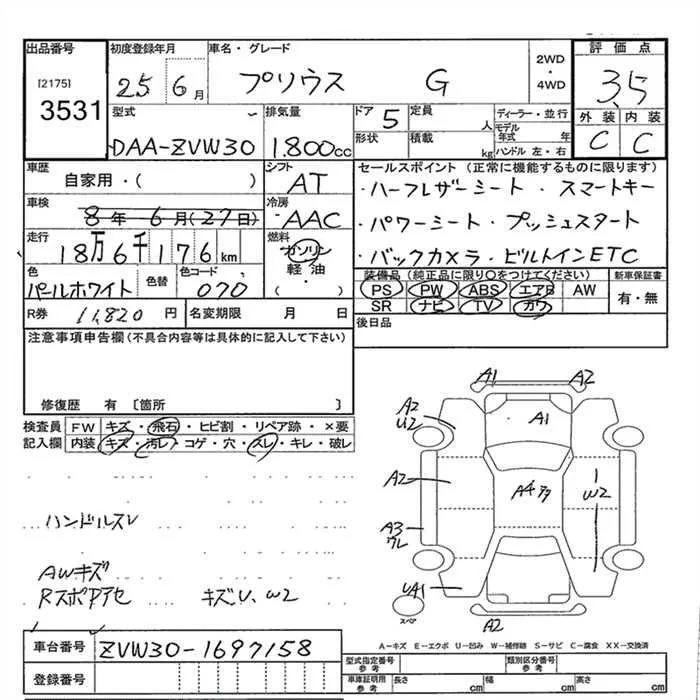 出品番号 初度登録年月 車名・グレード 2WD・4WD 評価点
[2175] 3531 25 6月 プリウス G 3.5
型式 排気量 ドア 5 定員 人 ディーラー・並行 外装 内装
DAA-ZVW30 1.800cc 形状 積載 kg モデル年式 年 ハンドル 左・右 C C
車歴 シフト セールスポイント (正常に機能するものに限ります)
自家用・( ) AT ・ハーフレザーシート ・スマートキー
車検 冷房
8年 6月(27日) AAC ・パワーシート ・プッシュスタート
走行 燃料
18万6千176km ガソリン ・バックカメラ ・ビルトインETC
色 色替 色コード 軽油 装備品 (純正品に限り○をつけてください) 新車保証書
パールホワイト 070 ( ・ ) PS PW ABS エアB AW 有・無
R券 11,820円 名変期限 月 日 SR ナビ TV カワ
後日品
注意事項申告欄(不具合内容等は具体的に記入して下さい)
修復歴 有 〔箇所 〕
検査員 FW キズ・飛石・ヒビ割・リペア跡・×要
記入欄 内装 キズ・汚レ・コゲ・穴・スレ・キレ・破レ
A1 A2
A2 U2 A1
A2 A4 W2
A3
ハンドルスレ
AWキズ
UA1
A2
スペア
A-キズ E-エクボ U-凹み W-補修跡 S-サビ C-腐食 XX-交換済
車台番号 ZVW30-1697158
型式指定番号 参考 類別区分番号 参考
登録番号 車庫証明用 参考 長さ cm 幅 cm 高さ cm